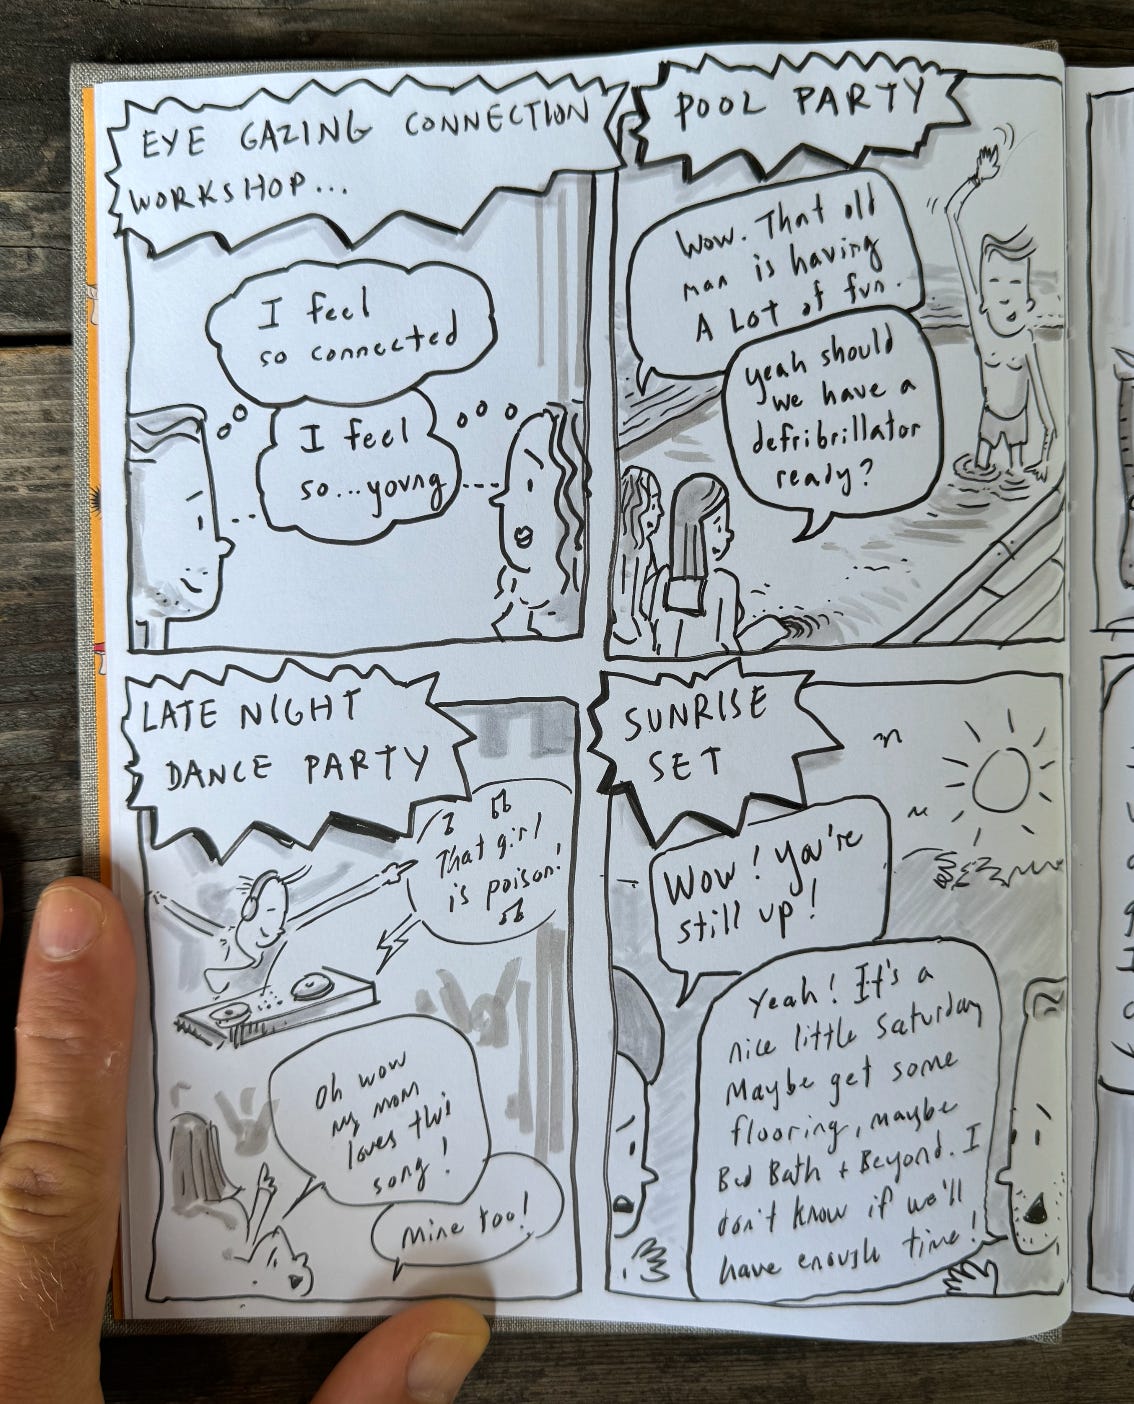 EYE GAZING CONNECTION
WORKSHOP...
I feel
so connected
I feel
so...young
POOL PARTY
Wow. That old
man is having
A LoT of fun.
yeah should
we have a
defribrillator
ready?
LATE NIGHT
DANCE PARTY
That girl
is poison!
Oh wow
my mom
loves this
song!
Mine too!
SUNRISE
SET
Wow! You're
still up!
Yeah! It's a
nice little Saturday
Maybe get some
flooring, maybe
Bed Bath + Beyond. I
don't know if we'll
have enough time!